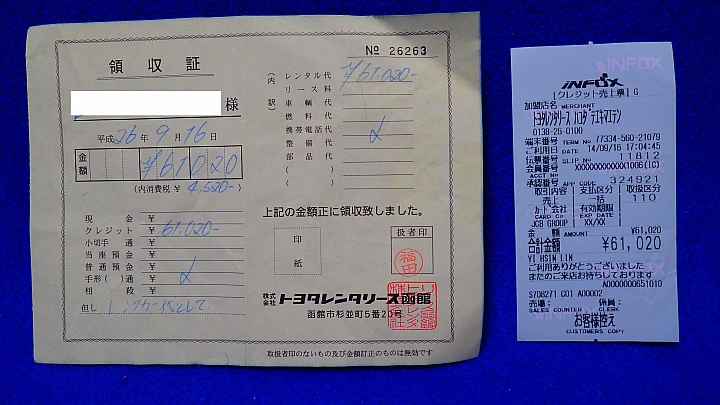 領収証
№ 26263
様
平成 26 年 9 月 16 日
金額 ¥61020
(内消費税 ¥ 4,520-)
現金 ¥
クレジット ¥ 61,020-
小切手 通 ¥
当座預金 ¥
普通預金 ¥
手形( )通 ¥
相殺 ¥
但し レンタカー代として
(内訳)
レンタル代 ¥61,020-
リース料
車輌代
燃料代
携帯電話代
整備代
部品代
( )
( )
上記の金額正に領収致しました。
印紙
扱者印
福田
株式会社 トヨタレンタリース函館
函館市杉並町5番20号
取扱者印のないもの及び金額訂正のものは無効です
INFOX
INFOX
[クレジット売上票] G
加盟店名 MERCHANT
トヨタレンタリース ハコダテエキマエテン
0138-26-0100
端末番号 TERM No 77334-560-21079
ご利用日 DATE 14/09/16 17:04:45
伝票番号 SLIP No 11812
会員番号 XXXXXXXXXXXX1006(IC)
ACCT No
承認番号 APP CODE 324921
取引内容 支払区分 取扱区分
売上 一括 110
カード会社 有効期限
CARD Co EXP DATE
JCB GROUP XX/XX
金額 AMOUNT ¥61,020
合計金額 ¥61,020
YI HSIN LIN
ご利用ありがとうございました
またのご来店お待ちしております
A0000000651010
S708271 C01 A00002
売場: 係員:
SALES COUNTER CLERK
お客様控え
CUSTOMERS COPY